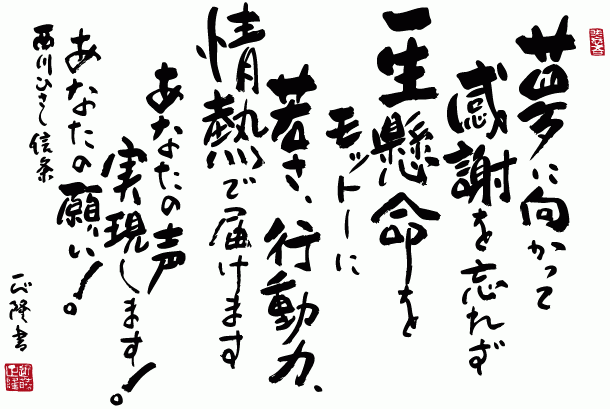 夢に向かって
感謝を忘れず
一生懸命を
モットーに
若さ、行動力、
情熱で届けます
あなたの声
実現します!。
あなたの願い!。
西川ひさし信条